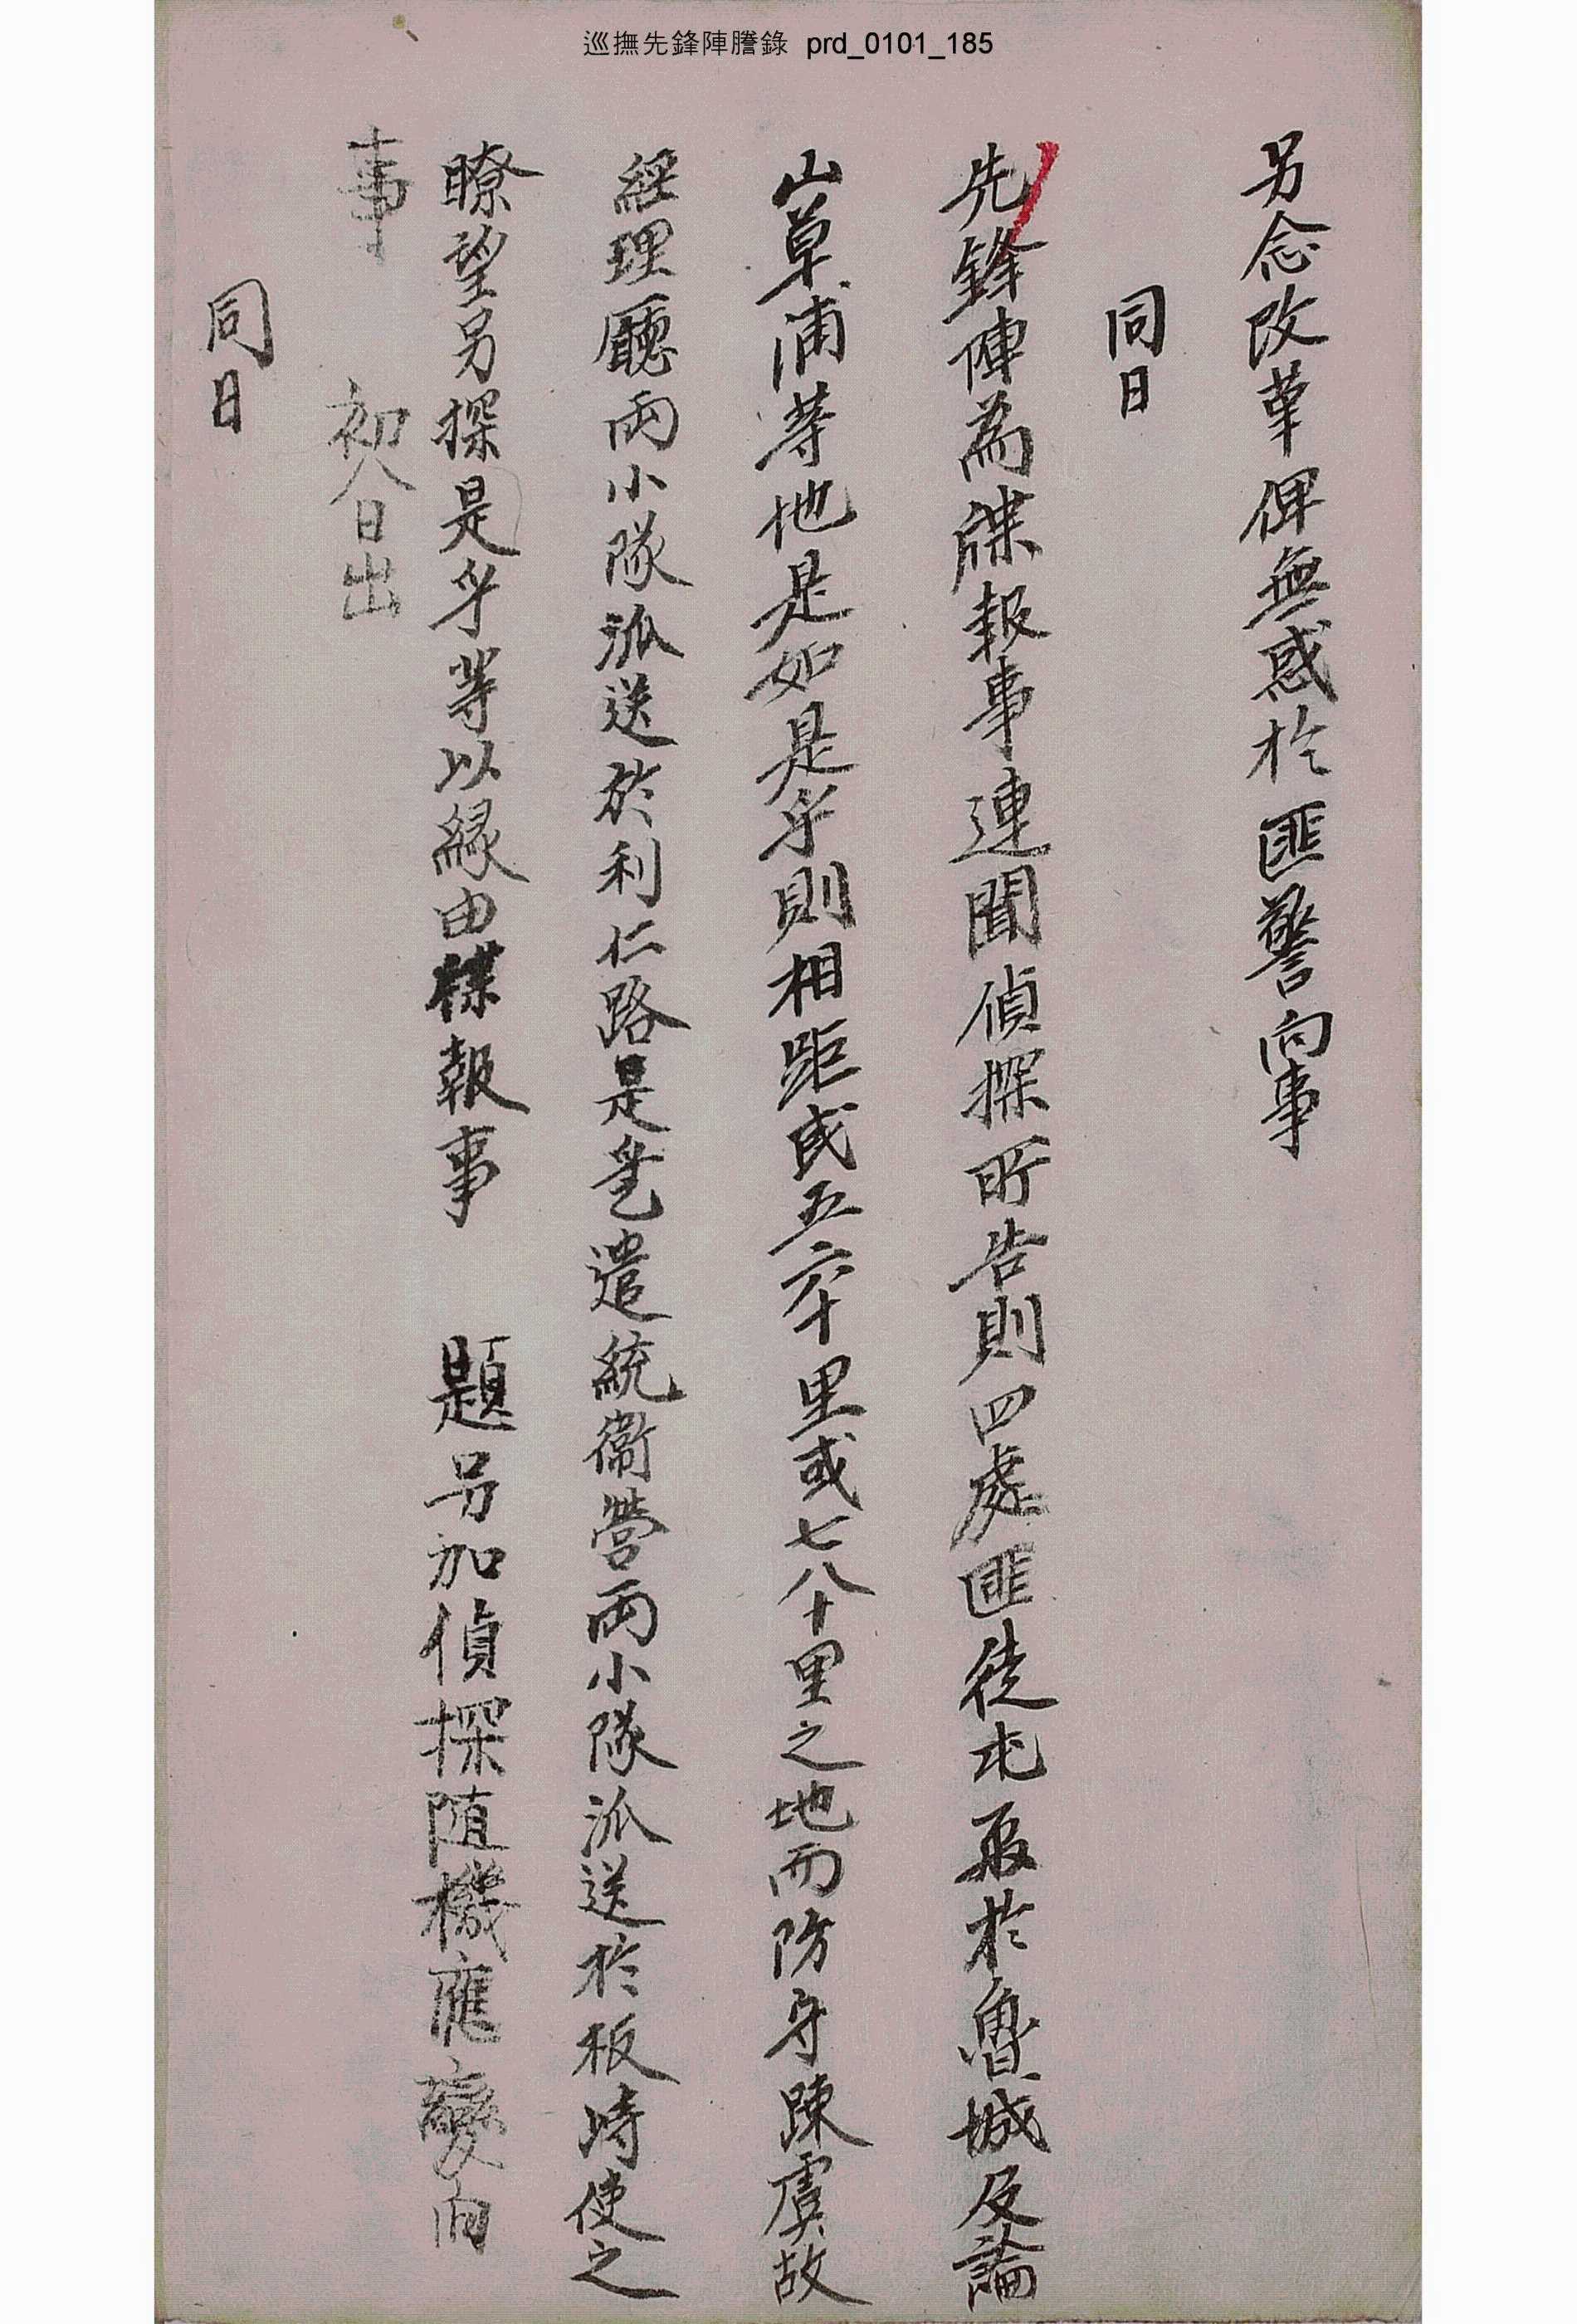 巡撫先鋒陣謄錄 prd_0101_185
另念改革俾無惑於匪警向事
同日
先鋒陣為牒報事連聞偵探所告則四處匪徒屯聚於魯城及論
山草浦等地是如是乎則相距或五六十里或七八十里之地而防守踈虞故
經理廳兩小隊派送於利仁路是乎乧遣統衛營兩小隊派送於板峙使之
瞭望另探是乎等以緣由牒報事 題另加偵探隨機應變向
事 初八日出
同日